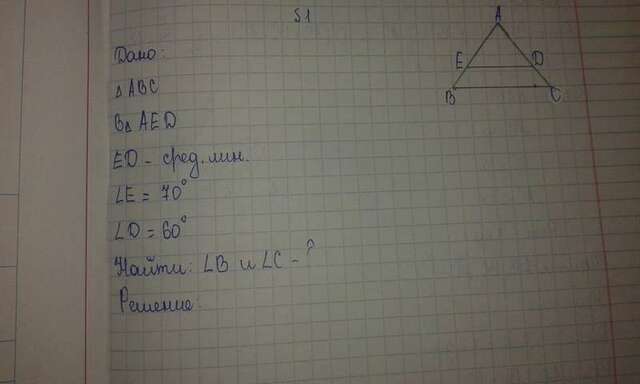 S1
Дано:
△ ABC
В△ AED
ED - сред. лин.
∠E = 70°
∠D = 60°
Найти: ∠B и ∠C - ?
Решение:
A
E D
B C